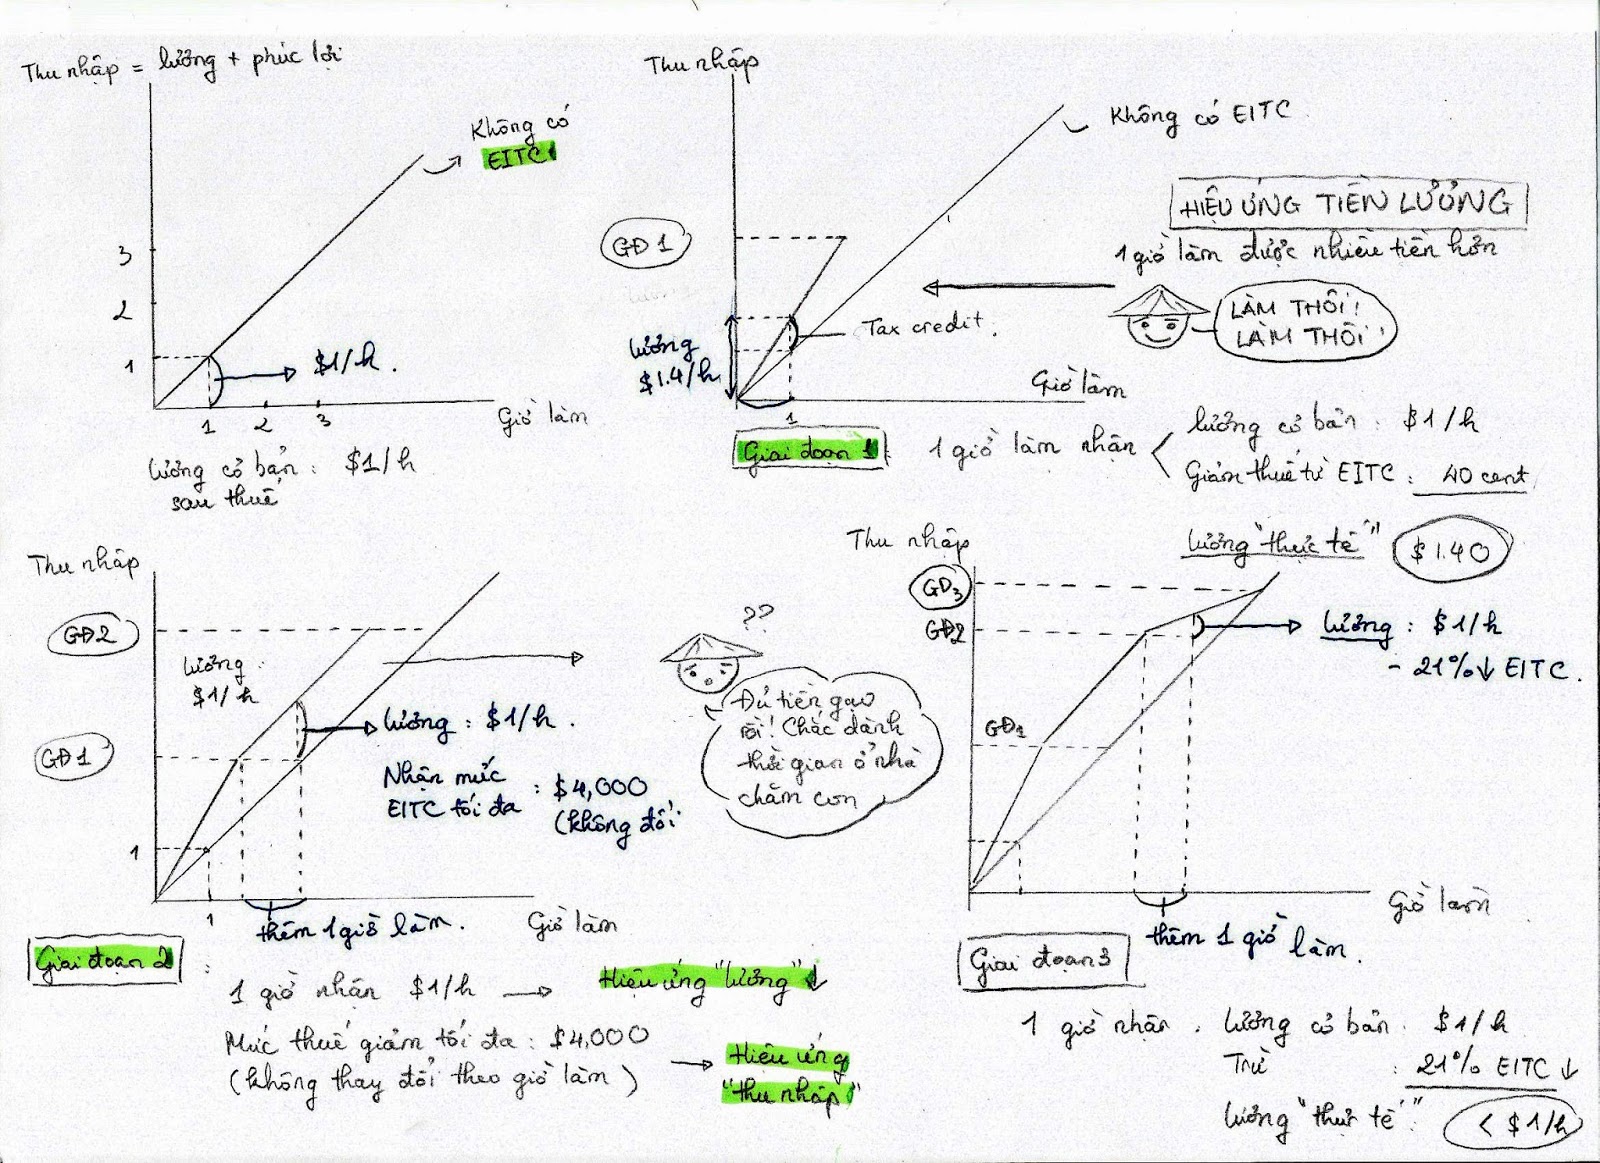 Thu nhập = lương + phúc lợi
Không có
EITC
3
2
1
$1/h.
1 2 3
Giờ làm
lương cơ bản : $1/h
sau thuế
Thu nhập
Không có EITC
GĐ 1
HIỆU ỨNG TIỀN LƯƠNG
1 giờ làm được nhiều tiền hơn
LÀM THÔI!
LÀM THÔI!
Tax credit.
lương
$1.4/h
Giờ làm
1
Giai đoạn 1 :
1 giờ làm nhận
lương cơ bản : $1/h
Giảm thuế từ EITC : 40 cent
lương "thực tế" $1.40
Thu nhập
GĐ2
lương :
$1/h
GĐ1
1
lương : $1/h.
Nhận mức
EITC tối đa : $4,000
(không đổi
??
Đủ tiền gạo
rồi! Chắc dành
thời gian ở nhà
chăm con
1
thêm 1 giờ làm.
Giờ làm
Giai đoạn 2 :
1 giờ nhận $1/h → Hiệu ứng "lương" ↓
Mức thuế giảm tối đa : $4,000
(không thay đổi theo giờ làm) → Hiệu ứng
"thu nhập"
Thu nhập
GĐ3
GĐ2
GĐ1
lương : $1/h
- 21%↓ EITC.
Giờ làm
thêm 1 giờ làm.
Giai đoạn 3
1 giờ nhận . lương cơ bản : $1/h
Trừ : 21% EITC ↓
lương "thực tế" : < $1/h